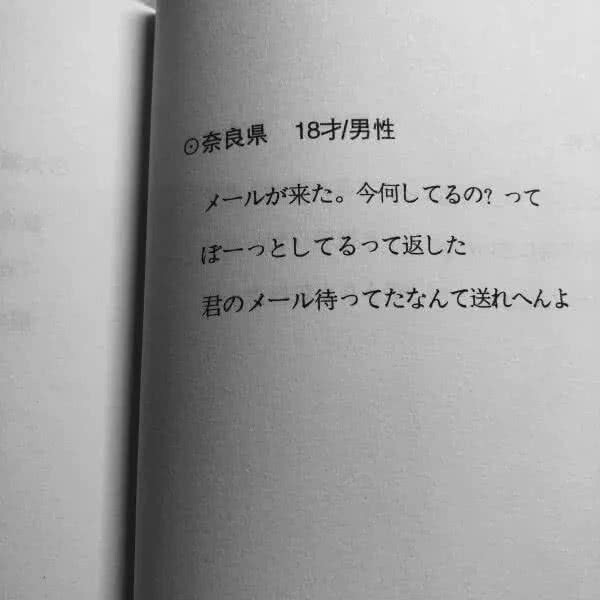 ⊙奈良県 18才/男性
メールが来た。今何してるの? って
ぼーっとしてるって返した
君のメール待ってたなんて送れへんよ